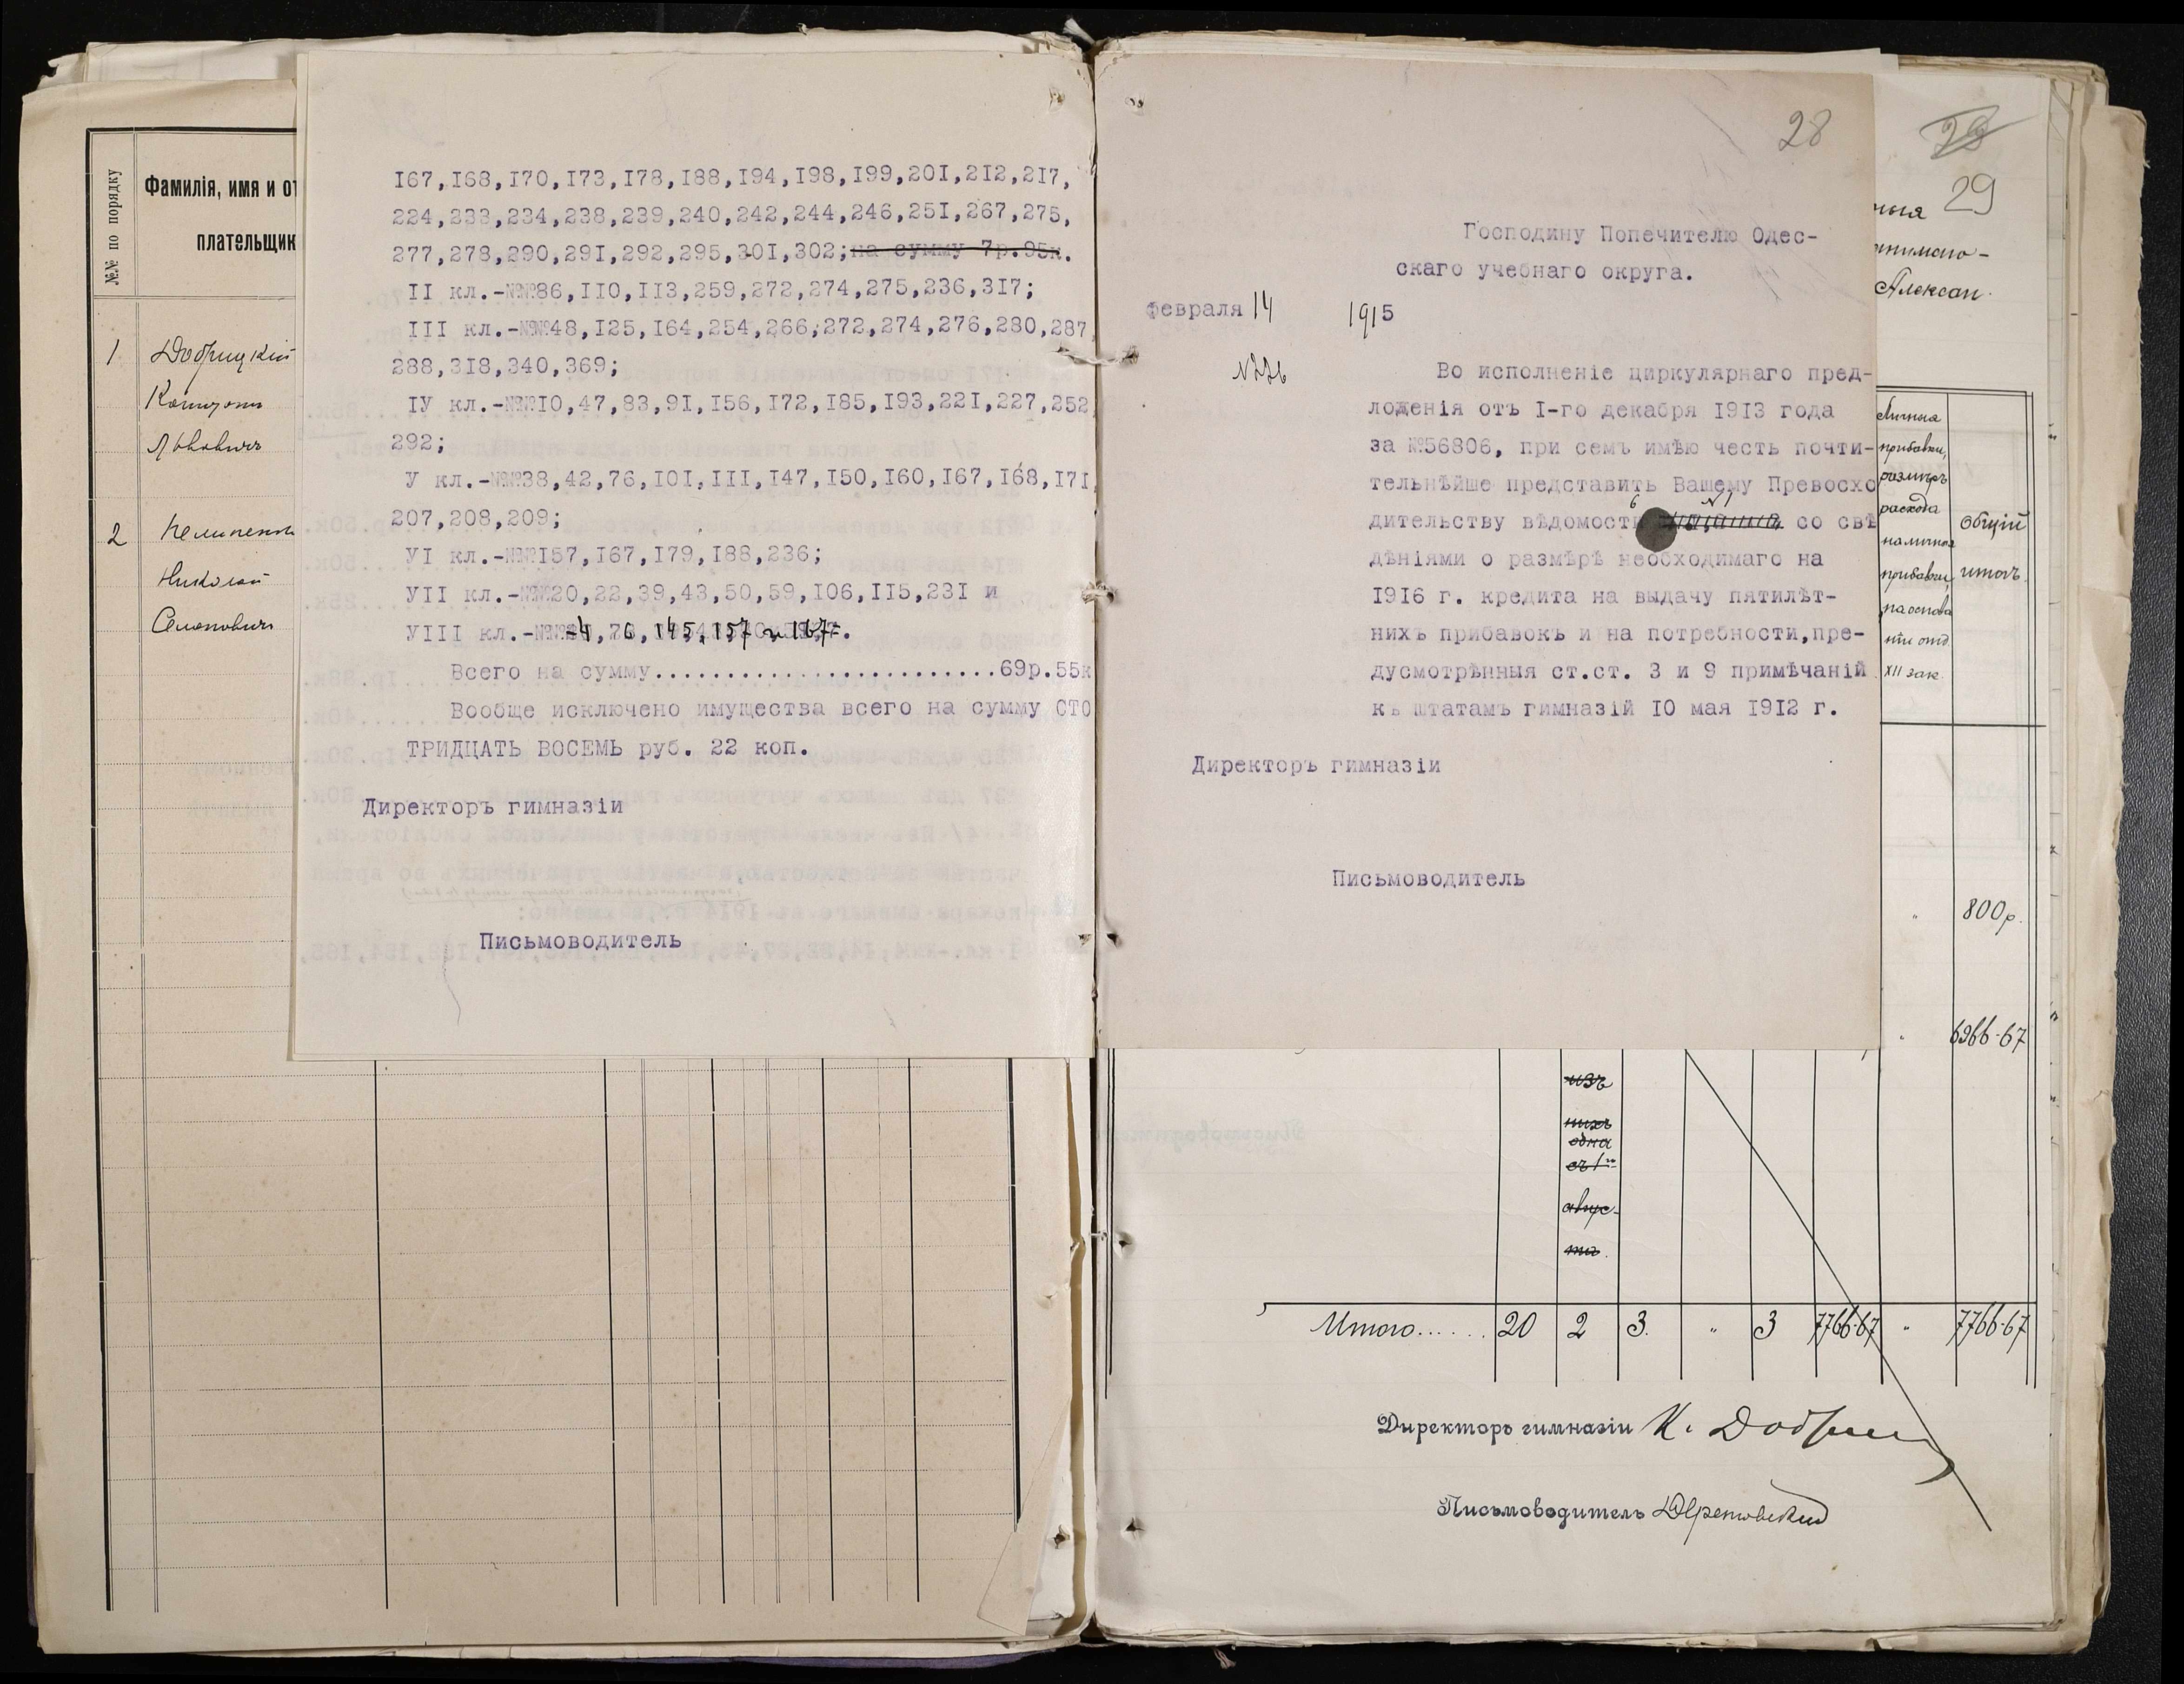 №№ по порядку
Фамилія, имя и от
плательщик
1 Добрицкій
Львовичъ
2
Николай
Семеновичъ
I67,I68,I70,I73,I78,I88,I94,I98,I99,20I,2I2,2I7,
224,233,234,238,239,240,242,244,246,25I,267,275,
277,278,290,29I,292,295,30I,302;на сумму 7р.95к.
II кл.-№№86,II0,II3,259,272,274,275,236,3I7;
III кл.-№№48,I25,I64,254,266,272,274,276,280,287
288,3I8,340,369;
IУ кл.-№№I0,47,83,9I,I56,I72,I85,I93,22I,227,252
292;
У кл.-№№38,42,76,I0I,III,I47,I50,I60,I67,I68,I7I
207,208,209;
УI кл.-№№I57,I67,I79,I88,236;
УII кл.-№№20,22,39,43,50,59,I06,II5,23I и
УIII кл.-№№ 145,157 и 167.
Всего на сумму........................69р.55к
Вообще исключено имущества всего на сумму СТО
ТРИДЦАТЬ ВОСЕМЬ руб. 22 коп.
Директоръ гимназіи
Письмоводитель
28
Господину Попечителю Одес-
скаго учебнаго округа.
февраля 14 1915
Во исполненіе циркулярнаго пред-
ложенія отъ I-го декабря I9I3 года
за №56806, при семъ имѣю честь почти-
тельнѣйше представить Вашему Превосхо
дительству вѣдомость со свѣ
дѣніями о размѣрѣ необходимаго на
I9I6 г. кредита на выдачу пятилѣт-
нихъ прибавокъ и на потребности,пре-
дусмотрѣнныя ст.ст. 3 и 9 примѣчаній
къ штатамъ гимназій I0 мая I9I2 г.
Директоръ гимназіи
Письмоводитель
29
29
Алексан.
Личная
прибавки,
размѣръ
расхода
на личныя
прибавки
на основа
ніи отд.
XII зак.
Общій
итогъ.
" 800р.
" 6966-67
изъ
нихъ
одна
съ 1го
авгус-
та.
Итого...... 20 2 3. " 3 7766-67 " 7766-67
Директоръ гимназіи К. Добриц
Письмоводитель